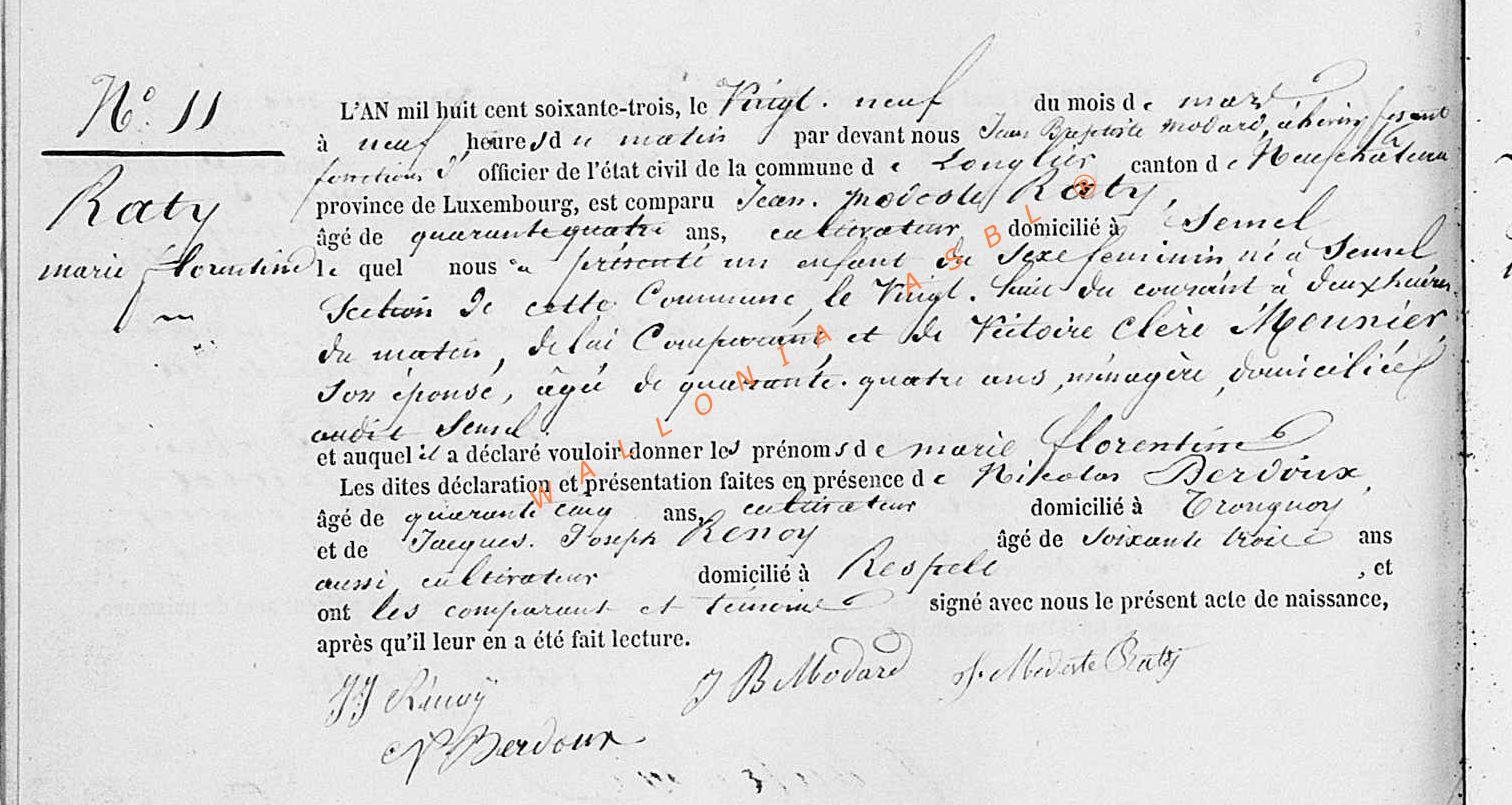 N° 11
Raty
marie florentine
L'AN mil huit cent soixante-trois, le Vingt. neuf du mois de mars
à neuf heures du matin par devant nous Jean Baptiste Modard, échevin fesant
fonctions d' officier de l'état civil de la commune de Longlier canton de Neufchâteau
province de Luxembourg, est comparu Jean. Modeste Raty,
âgé de quarante quatre ans, cultivateur domicilié à Semel
le quel nous a présenté un enfant du sexe feminin né à Semel
Section de cette Commune, le Vingt. huit du courant à deux heures
du matin, de lui Comparant et de Victoire Clère Meunier,
Son épouse, âgée de quarante. quatre ans, ménagère, domiciliée
audit Semel.
et auquel il a déclaré vouloir donner les prénoms de marie florentine
Les dites déclaration et présentation faites en présence de Nikolas Berdoux,
âgé de quarante cinq ans, cultivateur domicilié à Tronquoy
et de Jacques. Joseph Renoy âgé de soixante trois ans
aussi cultivateur domicilié à Respelt , et
ont les comparant et témoins signé avec nous le présent acte de naissance,
après qu'il leur en a été fait lecture.
JJ Rénoÿ J B Modard J. Modeste Raty
N Berdoux
WALLONIA ASBL ®